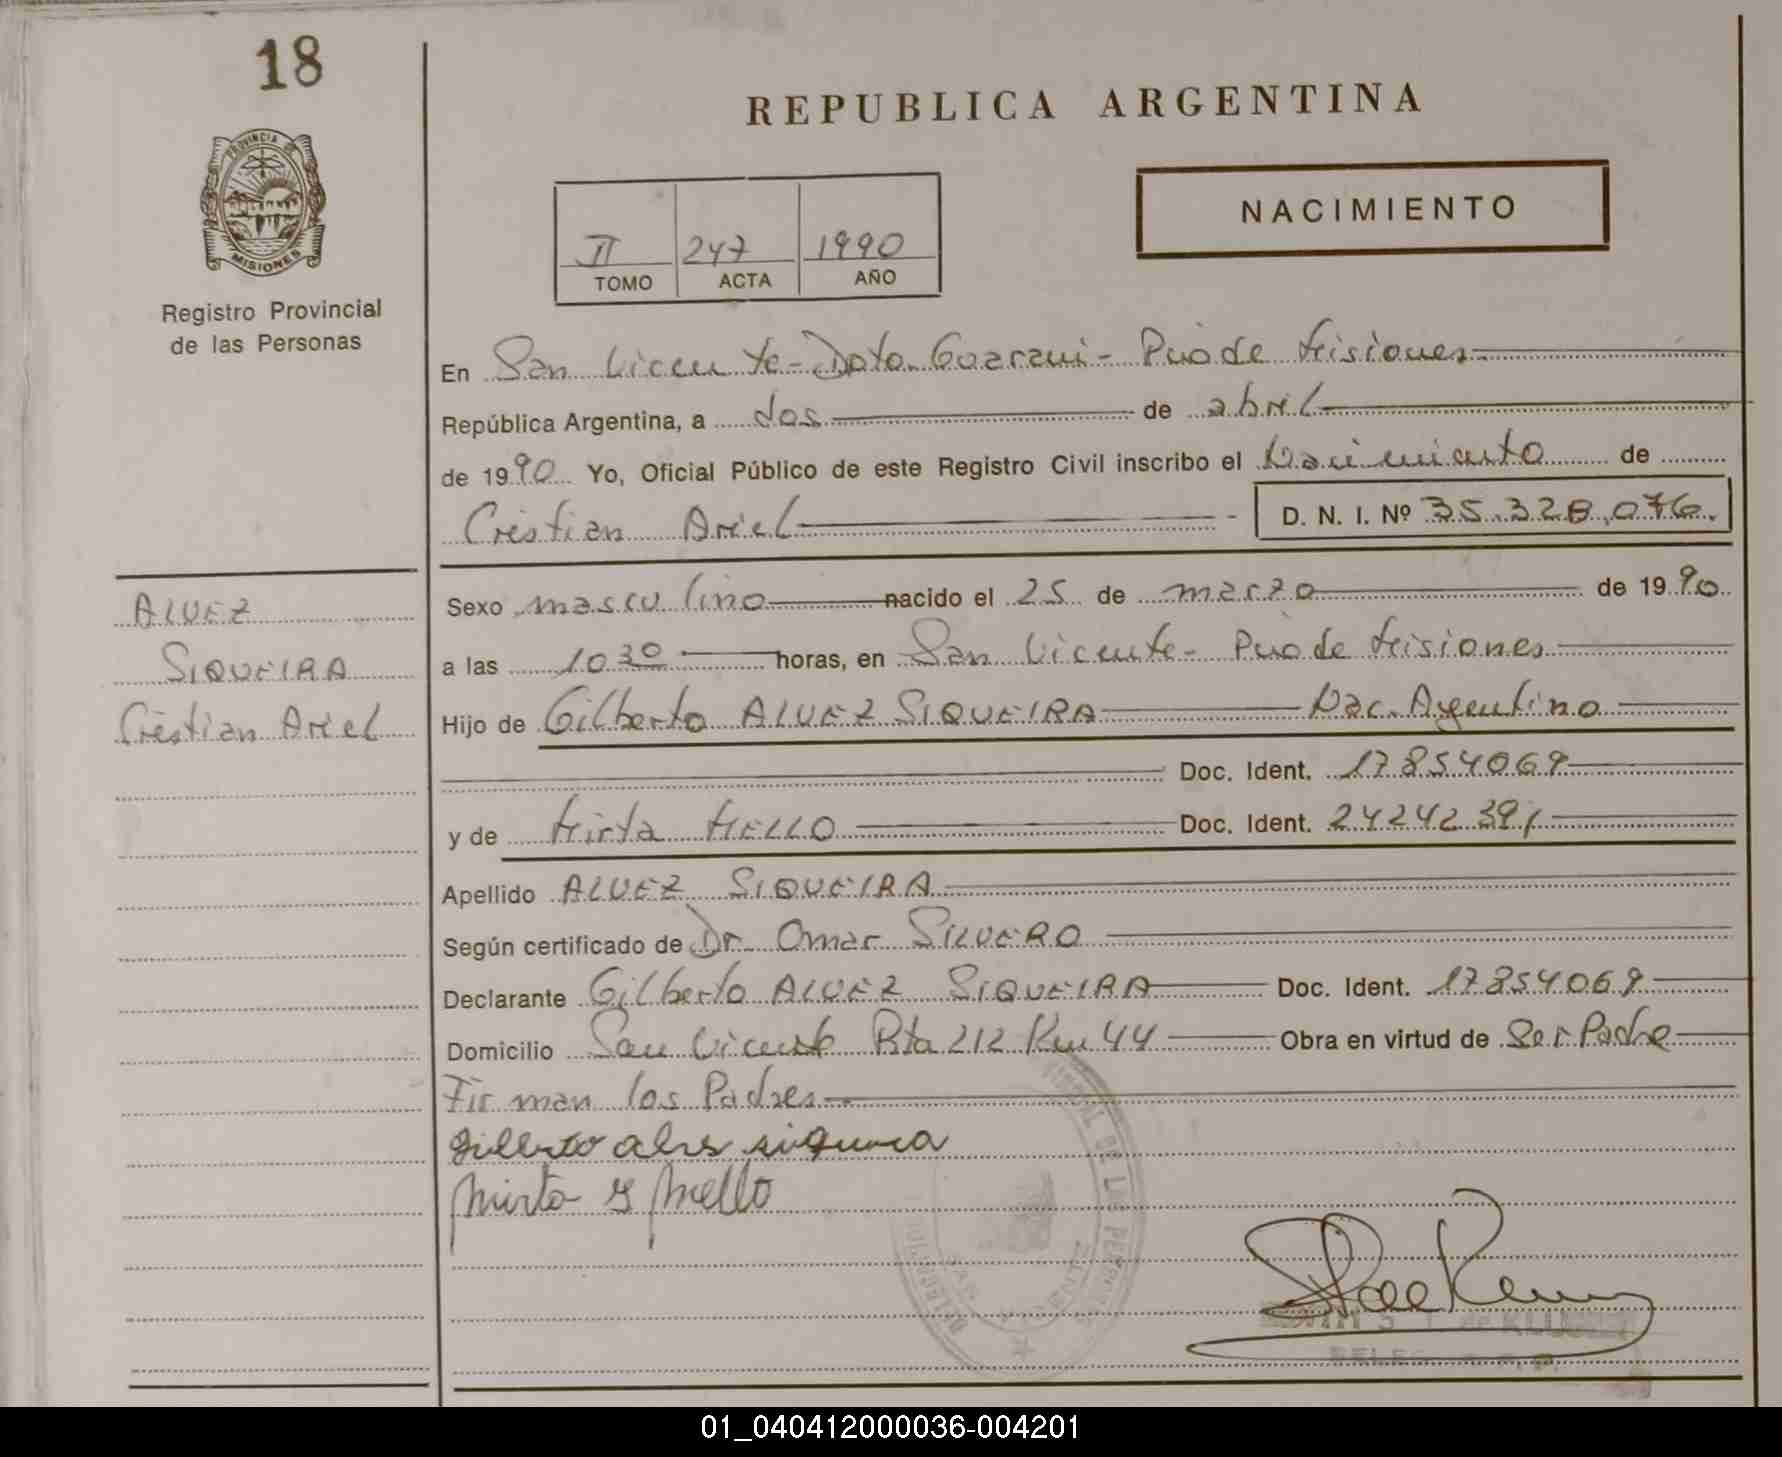 18
REPUBLICA ARGENTINA
PROVINCIA DE
MISIONES
NACIMIENTO
II 247 1990
TOMO ACTA AÑO
Registro Provincial
de las Personas
En San Vicente - Dpto. Guaraní - Pcia de Misiones
República Argentina, a dos de abril
de 1990 Yo, Oficial Público de este Registro Civil inscribo el Nacimiento de
Cristian Ariel D. N. I. Nº 35.328.076.
ALVEZ
SIQUEIRA
Cristian Ariel
Sexo masculino nacido el 25 de marzo de 1990
a las 10 30 horas, en San Vicente - Pcia de Misiones
Hijo de Gilberto ALVEZ SIQUEIRA Nac. Argentino
Doc. Ident. 17854069
y de Mirta MELLO Doc. Ident. 24242391
Apellido ALVEZ SIQUEIRA
Según certificado de Dr. Omar SILVERO
Declarante Gilberto ALVEZ SIQUEIRA Doc. Ident. 17854069
Domicilio San Vicente Rta 212 Km 44 Obra en virtud de Ser Padre
Firman los Padres
Mirta G Mello
SAN VICENTE
01_040412000036-004201